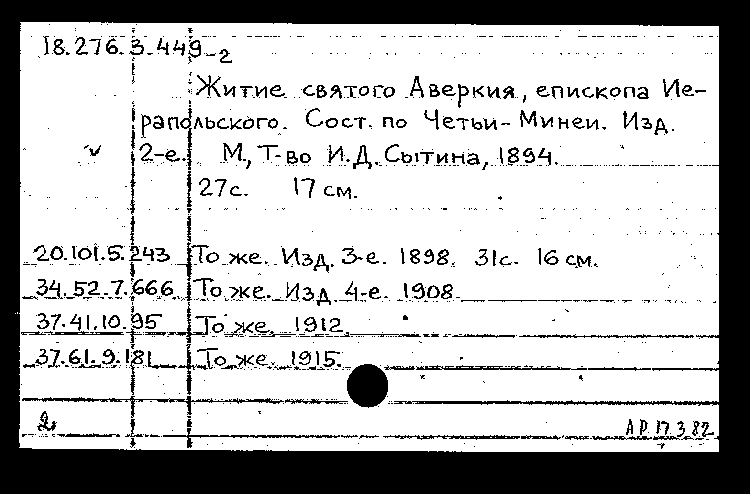 18.276.3.449-2
Житие святого Аверкия, епископа Ие-
рапольского. Сост. по Четьи-Минеи. Изд.
v 2-е. М., Т-во И.Д. Сытина, 1894.
27с. 17 см.
20.101.5.243 То же. Изд. 3-е. 1898. 31с. 16 см.
34.52.7.666 То же. Изд. 4-е. 1908.
37.41.10.95 То же. 1912.
37.61.9.181 То же. 1915.
2. АР. 17.3.82